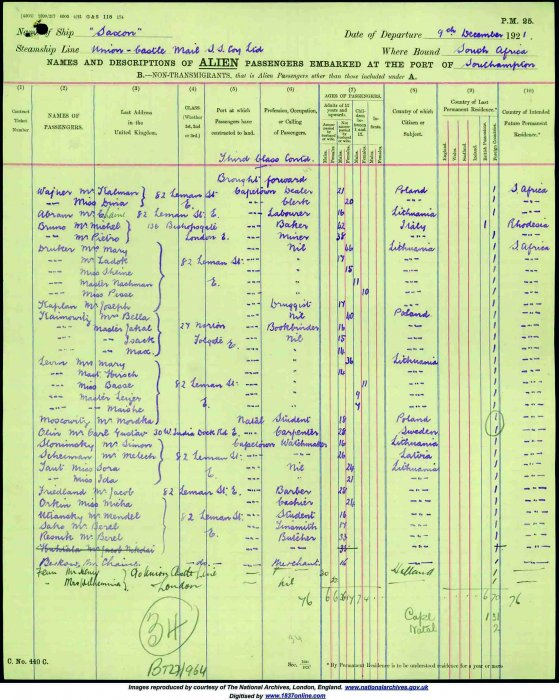 P.M. 25.
Name of Ship "Saxon" Date of Departure 9th December 1921
Steamship Line Union-Castle Mail S.S. Coy Ltd Where Bound South Africa
NAMES AND DESCRIPTIONS OF ALIEN PASSENGERS EMBARKED AT THE PORT OF Southampton
B.—NON-TRANSMIGRANTS, that is Alien Passengers other than those included under A.
(1) (2) (3) (4) (5) (6) (7) (8) (9) (10)
Contract Ticket Number
NAMES OF PASSENGERS.
Last Address in the United Kingdom.
CLASS (Whether 1st, 2nd or 3rd.)
Port at which Passengers have contracted to land.
Profession, Occupation, or Calling of Passengers.
AGES OF PASSENGERS.
Adults of 12 years and upwards.
Children between 1 and 12.
Infants.
Country of which Citizen or Subject.
Country of Last Permanent Residence.*
England. Wales. Scotland. Ireland. British Possessions. Foreign Countries.
Country of Intended Future Permanent Residence.*
Third Class Contd.
Brought forward
Wagner Mr Kalman 82 Leman St. Capetown Dealer 21 Poland 1 S Africa
-- Miss Dina E. Clerk 20 1
Abram Mr Chaim 82 Leman St. E. Labourer 16 Lithuania 1
Bruno Mr Michel 136 Bishopsgate Baker 42 Italy 1 Rhodesia
-- Mr Pietro London E. Miner 38 1
Druker Mrs Mary Nil 46 Lithuania 1 S Africa
-- Mr Zadok 82 Leman St. 17 1
-- Miss Sheine 15 1
-- Master Nachman E. 11 1
-- Miss Pesse 10 1
Kaplan Mr Joseph Druggist 17 1
Kaimowitz Mrs Bella Nil 40 Poland 1
-- Master Jakal Bookbinder 16 1
-- Isack Nil 15 1
-- Max 14 1
Levin Mrs Mary 36 Lithuania 1
-- Mast Hirsch 14 1
-- Miss Basse 82 Leman St. 11 1
-- Master Leizer E. 9 1
-- Maishe 4 1
Moscowitz Mr Mordka Natal Student 18 Poland 1
Olin Mr Carl Gustav India Dock Rd E. Carpenter 28 Sweden 1
Slonimsky Mr Simon Capetown Watchmaker 16 Lithuania 1
Scheiman Mr Meilech 82 Leman St. 26 Latvia 1
Taut Miss Sora E. Nil 24 Lithuania 1
-- Miss Ida 21 1
Friedland Mr Jacob 82 Leman St. E. Barber 28 1
Orkin Miss Micha Cashier 24 1
Utiansky Mr Mendel 82 Leman St. Student 16 1
Saks Mr Berel E. Tinsmith 17 1
Resnik Mr Berel Butcher 33 1
Mr Jacob Nikolai
Beskow, Mr Chaim -do- Merchant 16 1
Mr c/o Union Castle Line 30 Holland 1
-- Mrs London nil 1
76 6 70 76
Cape 1
Natal 2
34
BT27/964
C. No. 440 C.
* By Permanent Residence is to be understood residence for a year or more
Images reproduced by courtesy of The National Archives, London, England. www.nationalarchives.gov.uk
Digitised by www.1837online.com